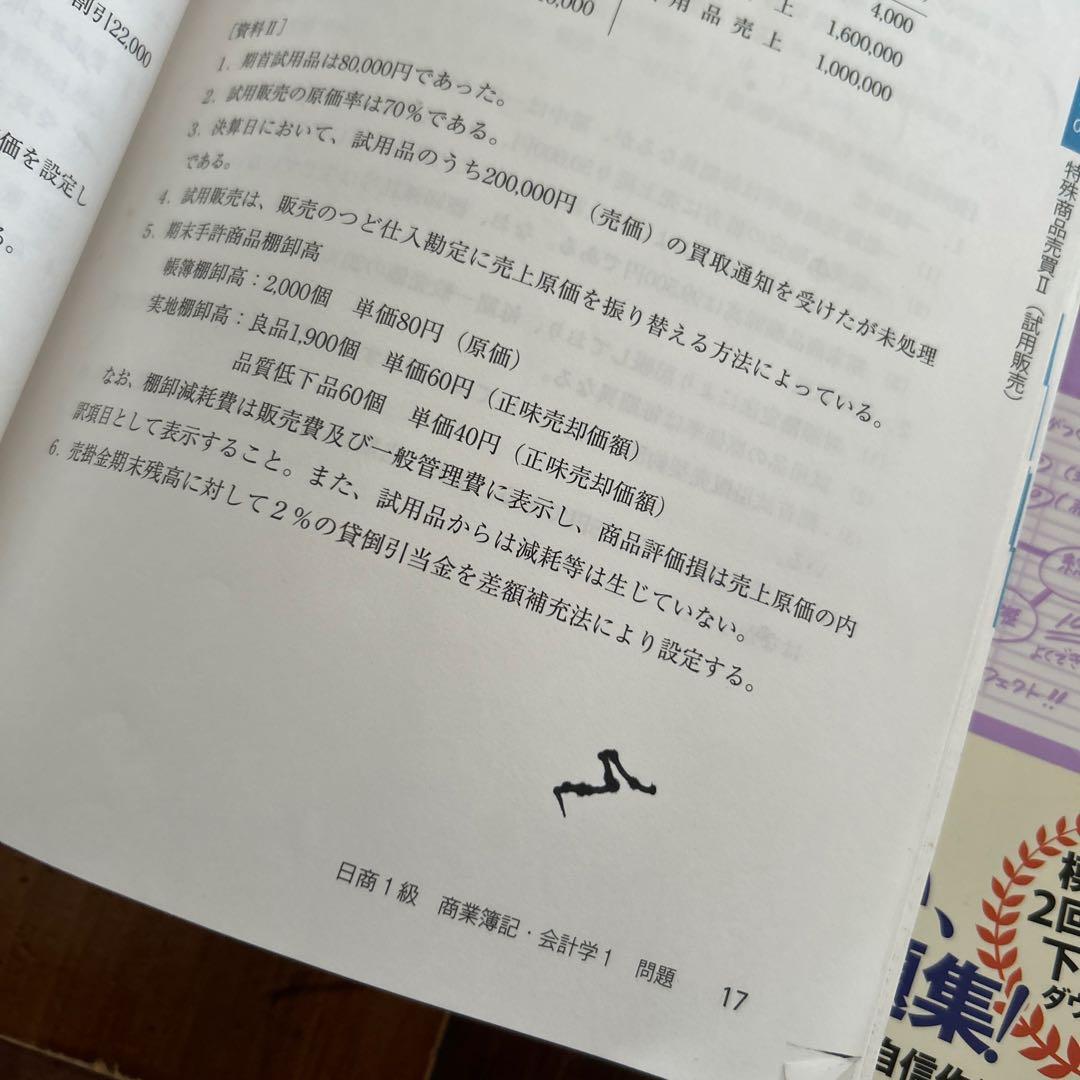 割引22,000
価を設定し
る。
4,000
用品売上 1,600,000
1,000,000
[資料Ⅱ]
1. 期首試用品は80,000円であった。
2. 試用販売の原価率は70%である。
3. 決算日において、試用品のうち200,000円(売価)の買取通知を受けたが未処理
である。
4. 試用販売は、販売のつど仕入勘定に売上原価を振り替える方法によっている。
5. 期末手許商品棚卸高
帳簿棚卸高:2,000個 単価80円(原価)
実地棚卸高:良品1,900個 単価60円(正味売却価額)
品質低下品60個 単価40円(正味売却価額)
なお、棚卸減耗費は販売費及び一般管理費に表示し、商品評価損は売上原価の内
訳項目として表示すること。また、試用品からは減耗等は生じていない。
6. 売掛金期末残高に対して2%の貸倒引当金を差額補充法により設定する。
日商1級 商業簿記・会計学1 問題 17
特殊商品売買Ⅱ(試用販売)
よくでき
2回
下
ダウ
題集!